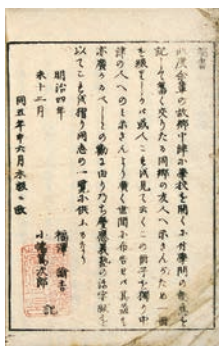 端書
此度余輩の故郷中津に學校を開くに付學問の趣意を
記して舊く交りたる同郷の友人へ示さんがため一冊
を綴りしかバ或人これを見て云くこの冊子を獨り中
津の人へのみ示さんより廣く世間に布告せば其益も
亦廣かるべしとの勸に由り乃ち慶應義塾の活字版を
以てこれを摺り同志の一覽に供ふるなり
明治四年
未十二月
福澤 諭吉
小幡篤次郎 記
同五年申六月